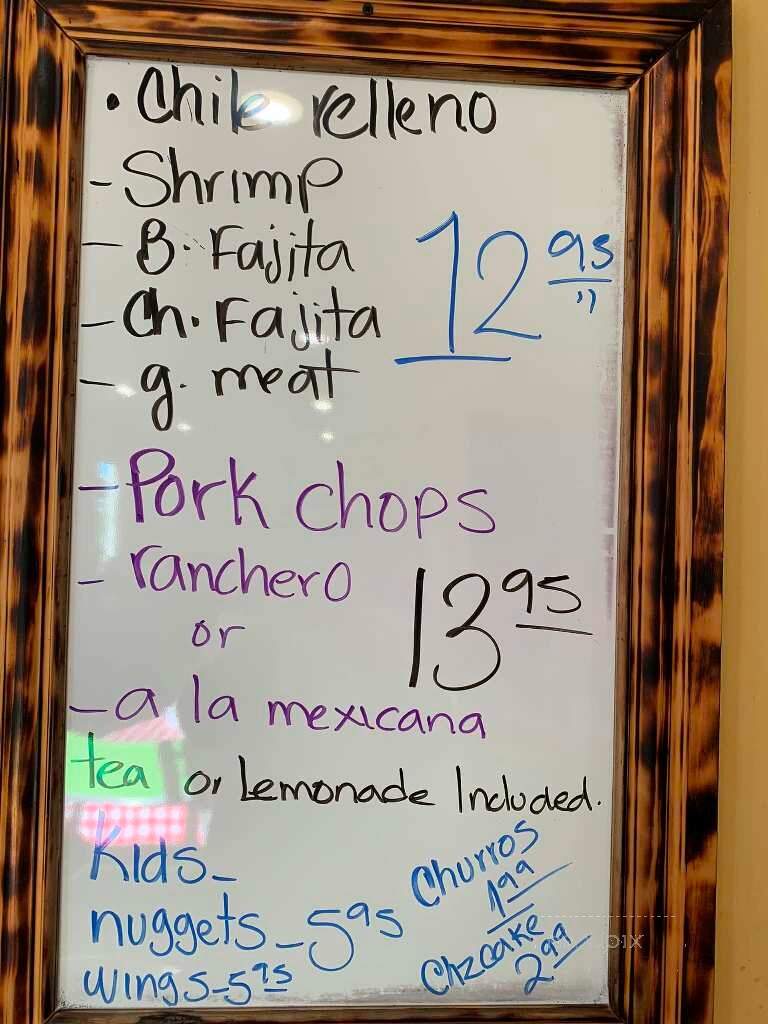 • Chile relleno
- Shrimp
- B. Fajita
12 95 "
- Ch. Fajita
- g. meat
- Pork chops
- ranchero
or
13 95
- a la mexicana
tea or Lemonade Included.
Kids -
nuggets - 5 95
wings - 5 95
Churros
1 99
Chzcake
2 99